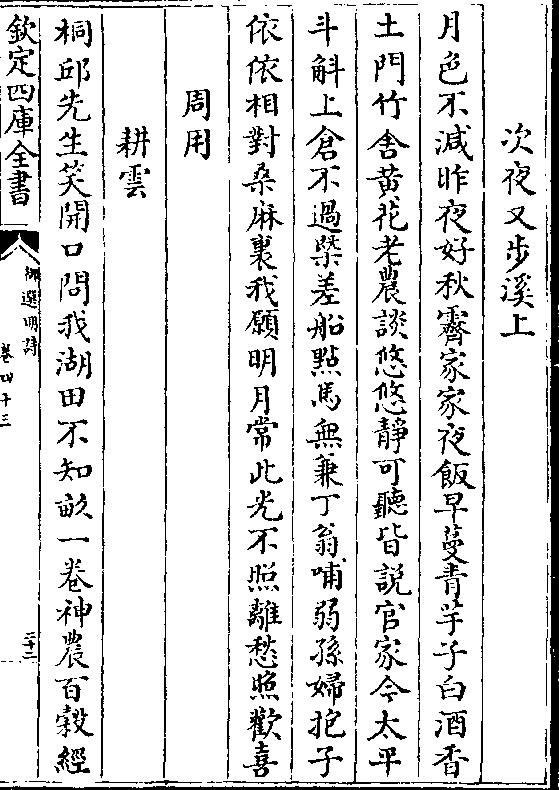 次夜又步溪上
月色不減昨夜好秋霽家家夜飯早蔓青芋子白酒香
土門竹舎黄花老農談悠悠靜可聽皆說官家今太平
斗斛上倉不過槩差船㸃馬無兼丁翁哺弱孫婦抱子
依依相對桑麻裏我願明月常此光不照離愁照歡喜
周用
耕雲
桐邱先生笑開口問我湖田不知畝一卷神農百穀經
欽定四庫全書
御選明詩
卷四十三
三十二